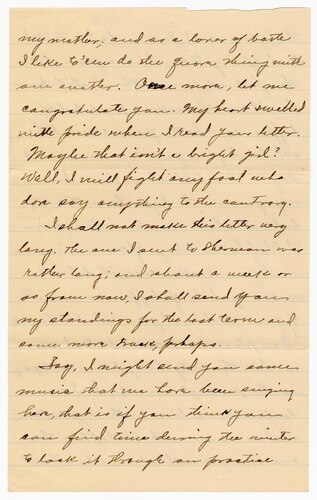 my mother, and as a lover of both
I like to een do the square thing with
one another. Once more, let me
congratulate you. My heart swelled
with pride when I read your letter.
Maybe that isn't a bright girl?
Well, I will fight any fool who
dare say anything to the contrary.
I shall not make this letter very
long. the one I sent to Sherman was
rather long; and about a week or
so from now, I shall send you
my standings for the last term and
some more , perhaps.
Say, I might send you some
music that we have been singing
here, that is if you think you
can find time during the winter
to look it through or practice